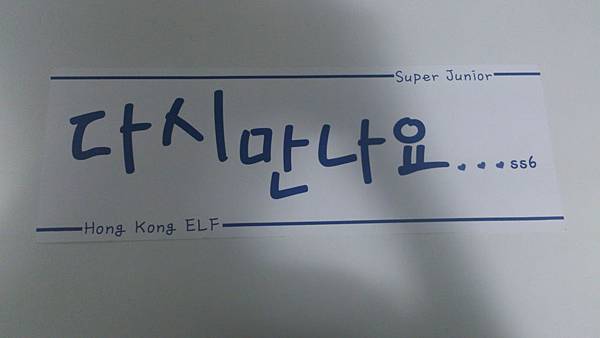 Super Junior
다시만나요...ss6
Hong Kong ELF